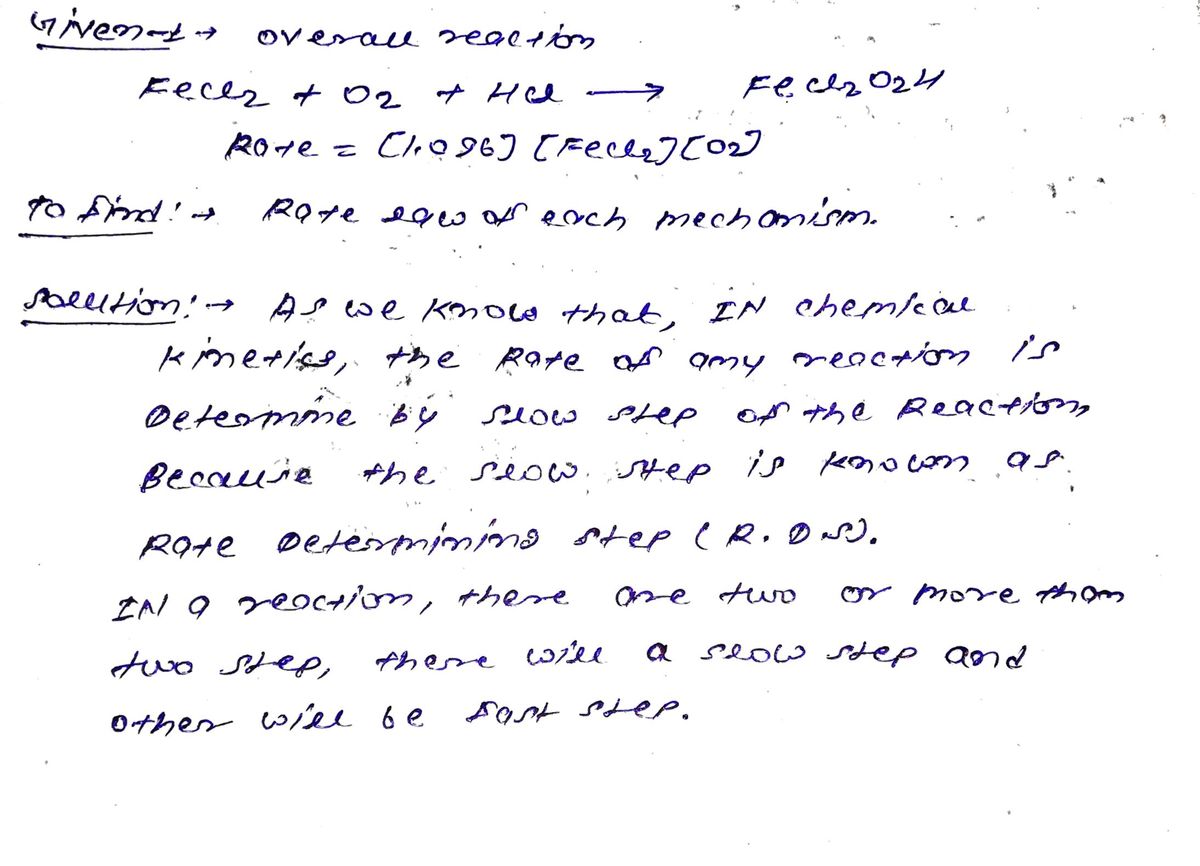 Given → overall reaction
FeCl2 + O2 + HCl → FeCl2O2H
Rate = [1.096] [FeCl2][O2]
To find: → Rate law of each mechanism.
Solution: → As we know that, IN chemical
kinetics, the Rate of any reaction is
Determine by slow step of the Reaction,
Because the slow step is known as
Rate Determining step (R.D.S).
IN a reaction, there are two or more than
two step, there will a slow step and
other will be fast step.